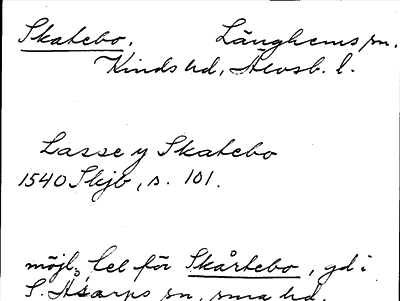 Skatebo. Länghems sn.
Kinds hd, Älvsb. l.
Lasse y Skatebo
1540 Skjb, s. 101.
möjl. fel för Skårtebo, gd i
S. Åsarps sn, sma hd.